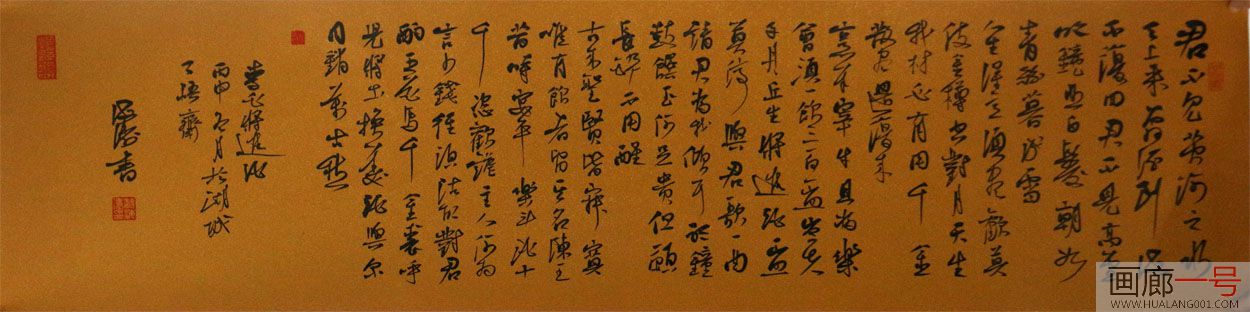 君不見黄河之水
天上来奔流到海
不復回君不見高堂
明鏡悲白髮朝如
青絲暮成雪
人生得意須盡歡莫
使金樽空對月天生
我材必有用千金
散盡還復来
烹羊宰牛且為樂
會須一飲三百盃岑夫
子丹丘生將進酒盃
莫停與君歌一曲
請君為我傾耳鐘
鼓饌玉何足貴但願
長醉不用醒
古来聖賢皆寂寞
唯有飲者留其名陳王
昔時宴平樂斗酒十
千恣歡謔主人何為
言少錢徑須沽取對君
酌五花馬千金裘呼
兒將出換美酒與尔
同銷萬古愁
李白將進酒
丙申月於湖城
了悟齋
書
画廊一号
WWW.HUALANG001.COM